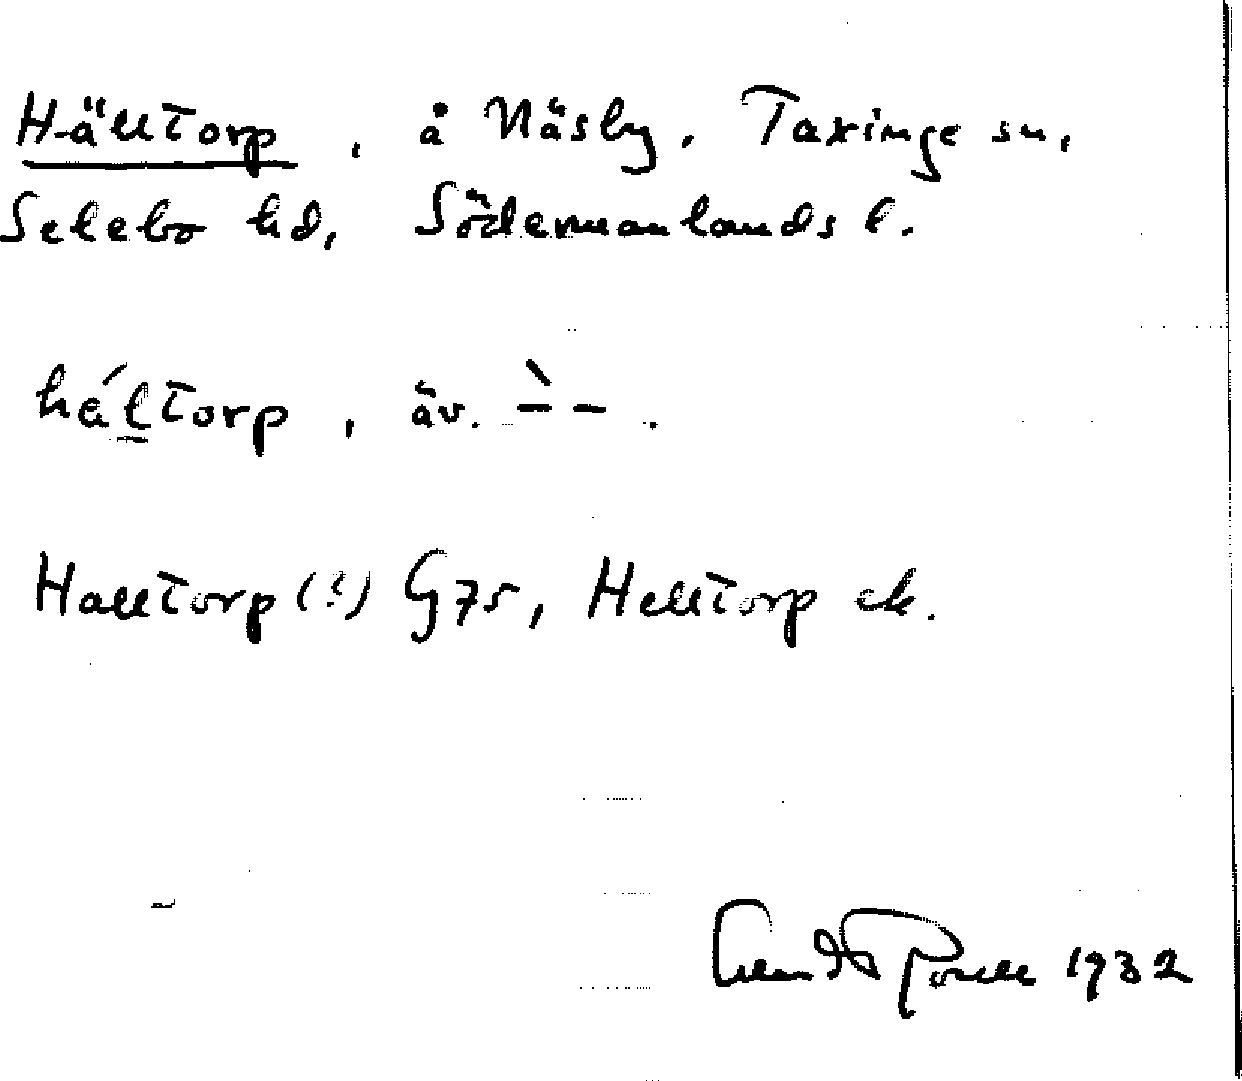 Hälltorp, å Näsby, Taxinge sn,
Selebo hd, Södermanlands l.
há̤ltorp, äv. –̀ –.
Halltorp (!) G 75, Helltorp ek.
1932